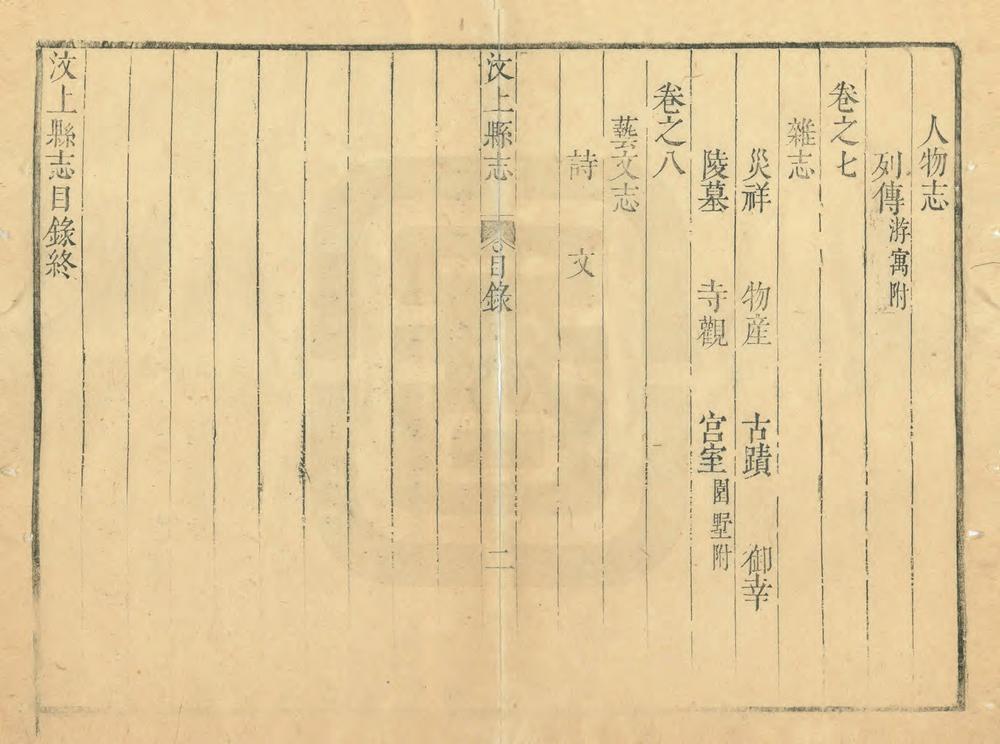 人物志
列傳游寓附
卷之七
雜志
災祥　物産　古蹟　御幸
陵墓　寺觀　宫室園墅附
卷之八
藝文志
詩　文
汶上縣志　目錄　二
汶上縣志目錄終